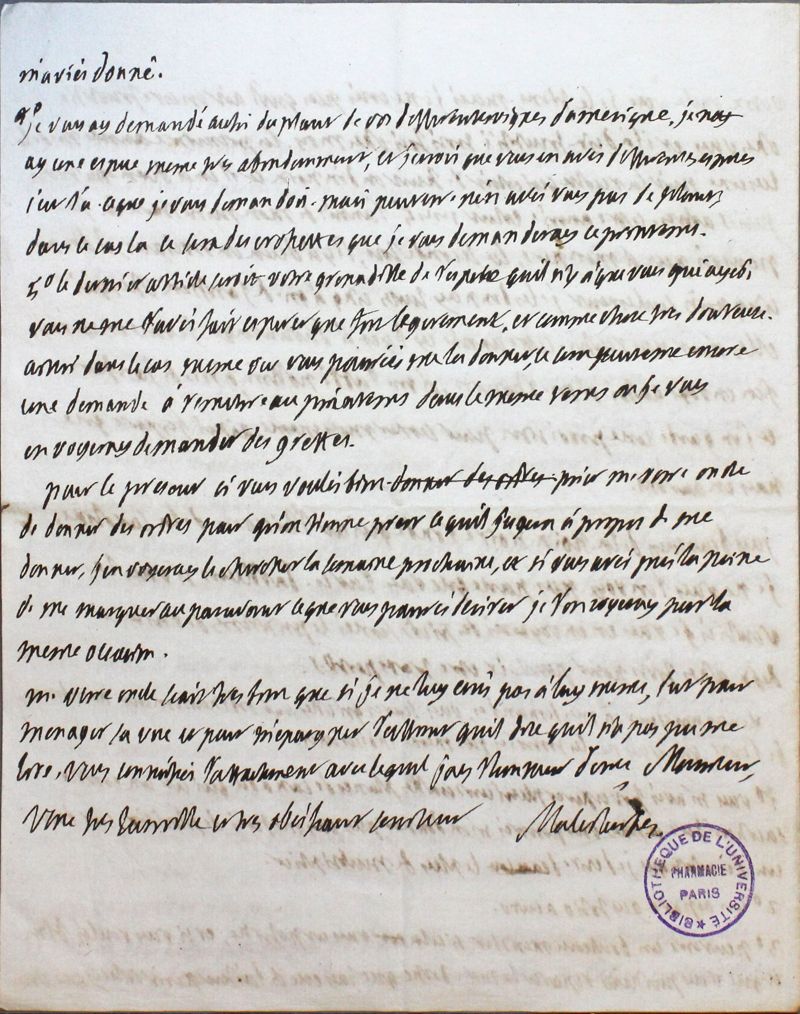 m'aviés donné.
4° je vous ay demandé aussi du plant de vos differentes vignes d'amerique, je n'ay
ay une espece meme tres abondamment, et je crois que vous en avés differentes especes
c'est la ce que je vous demandois. mais peutetre n'en avés vous pas de plant,
dans ce cas la ce sera des crossettes que je vous demanderay ce printems.
5° le dernier article seroit votre grenadille de qu'il n'y a que vous qui ayés,
vous ne me l'avés fait esperer que fort legerement, et comme chose tres douteuse.
ainsi dans le cas meme ou vous pourriés me les donner, ce sera peutetre encore
une demande à remettre au printems dans le meme tems ou je vous
envoyeray demander des greffes.
pour le present si vous voulés bien donner des ordres prier m. votre oncle
de donner des ordres pour qu'on tienne prest ce qu'il jugera à propos de me
donner, j'envoyeray le chercher la semaine prochaine, et si vous avés pris la peine
de me marquer auparavant ce que vous pouvés desirer je l'envoyeray par la
meme occasion.
m. votre oncle sait tres bien que si je ne luy ecris pas à luy meme, c'est pour
menager sa vue et pour m'epargner qu'il dise qu'il n'a pas pu me
lire, vous connoissés l'attachement avec lequel j'ay l'honneur d'etre Monsieur,
Votre tres humble et tres obeissant serviteur Malesherbes.
BIBLIOTHEQUE DE L'UNIVERSITÉ
PHARMACIE
PARIS